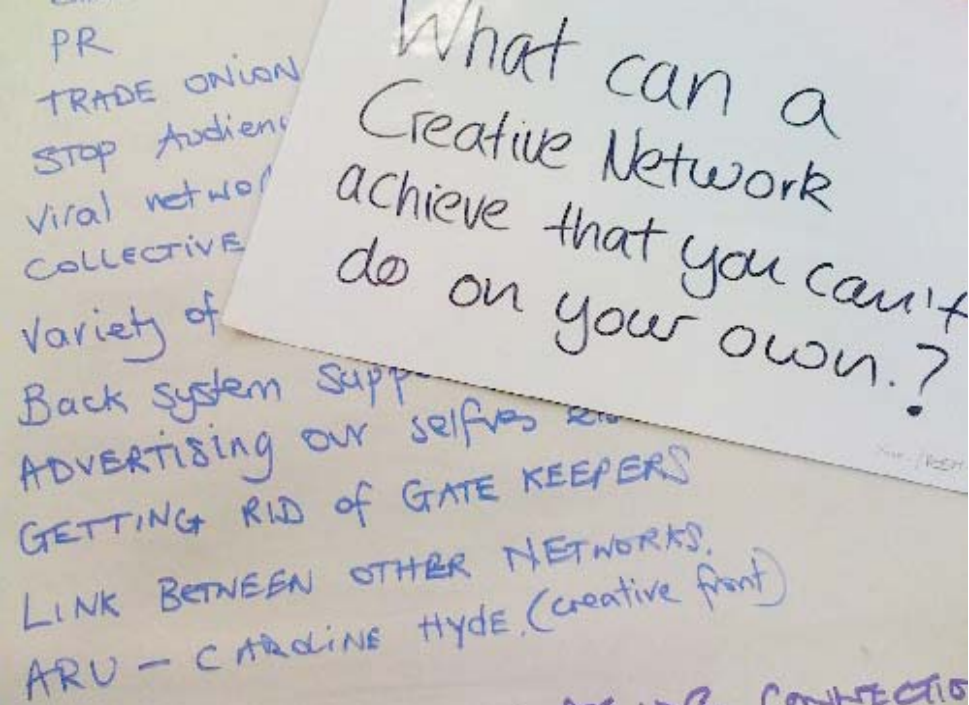 PR
TRADE ONION
STOP Audienc
Viral networ
COLLECTIVE
Variety of
Back system supp
ADVERTiSing our selfves
GETTING RID of GATE KEEPERS
LINK BETWEEN OTHER NETWORKS.
ARU – CAROLINE HYDE. (creative front)
CONNECTIO
What can a
Creative Network
achieve that you can't
do on your own.?